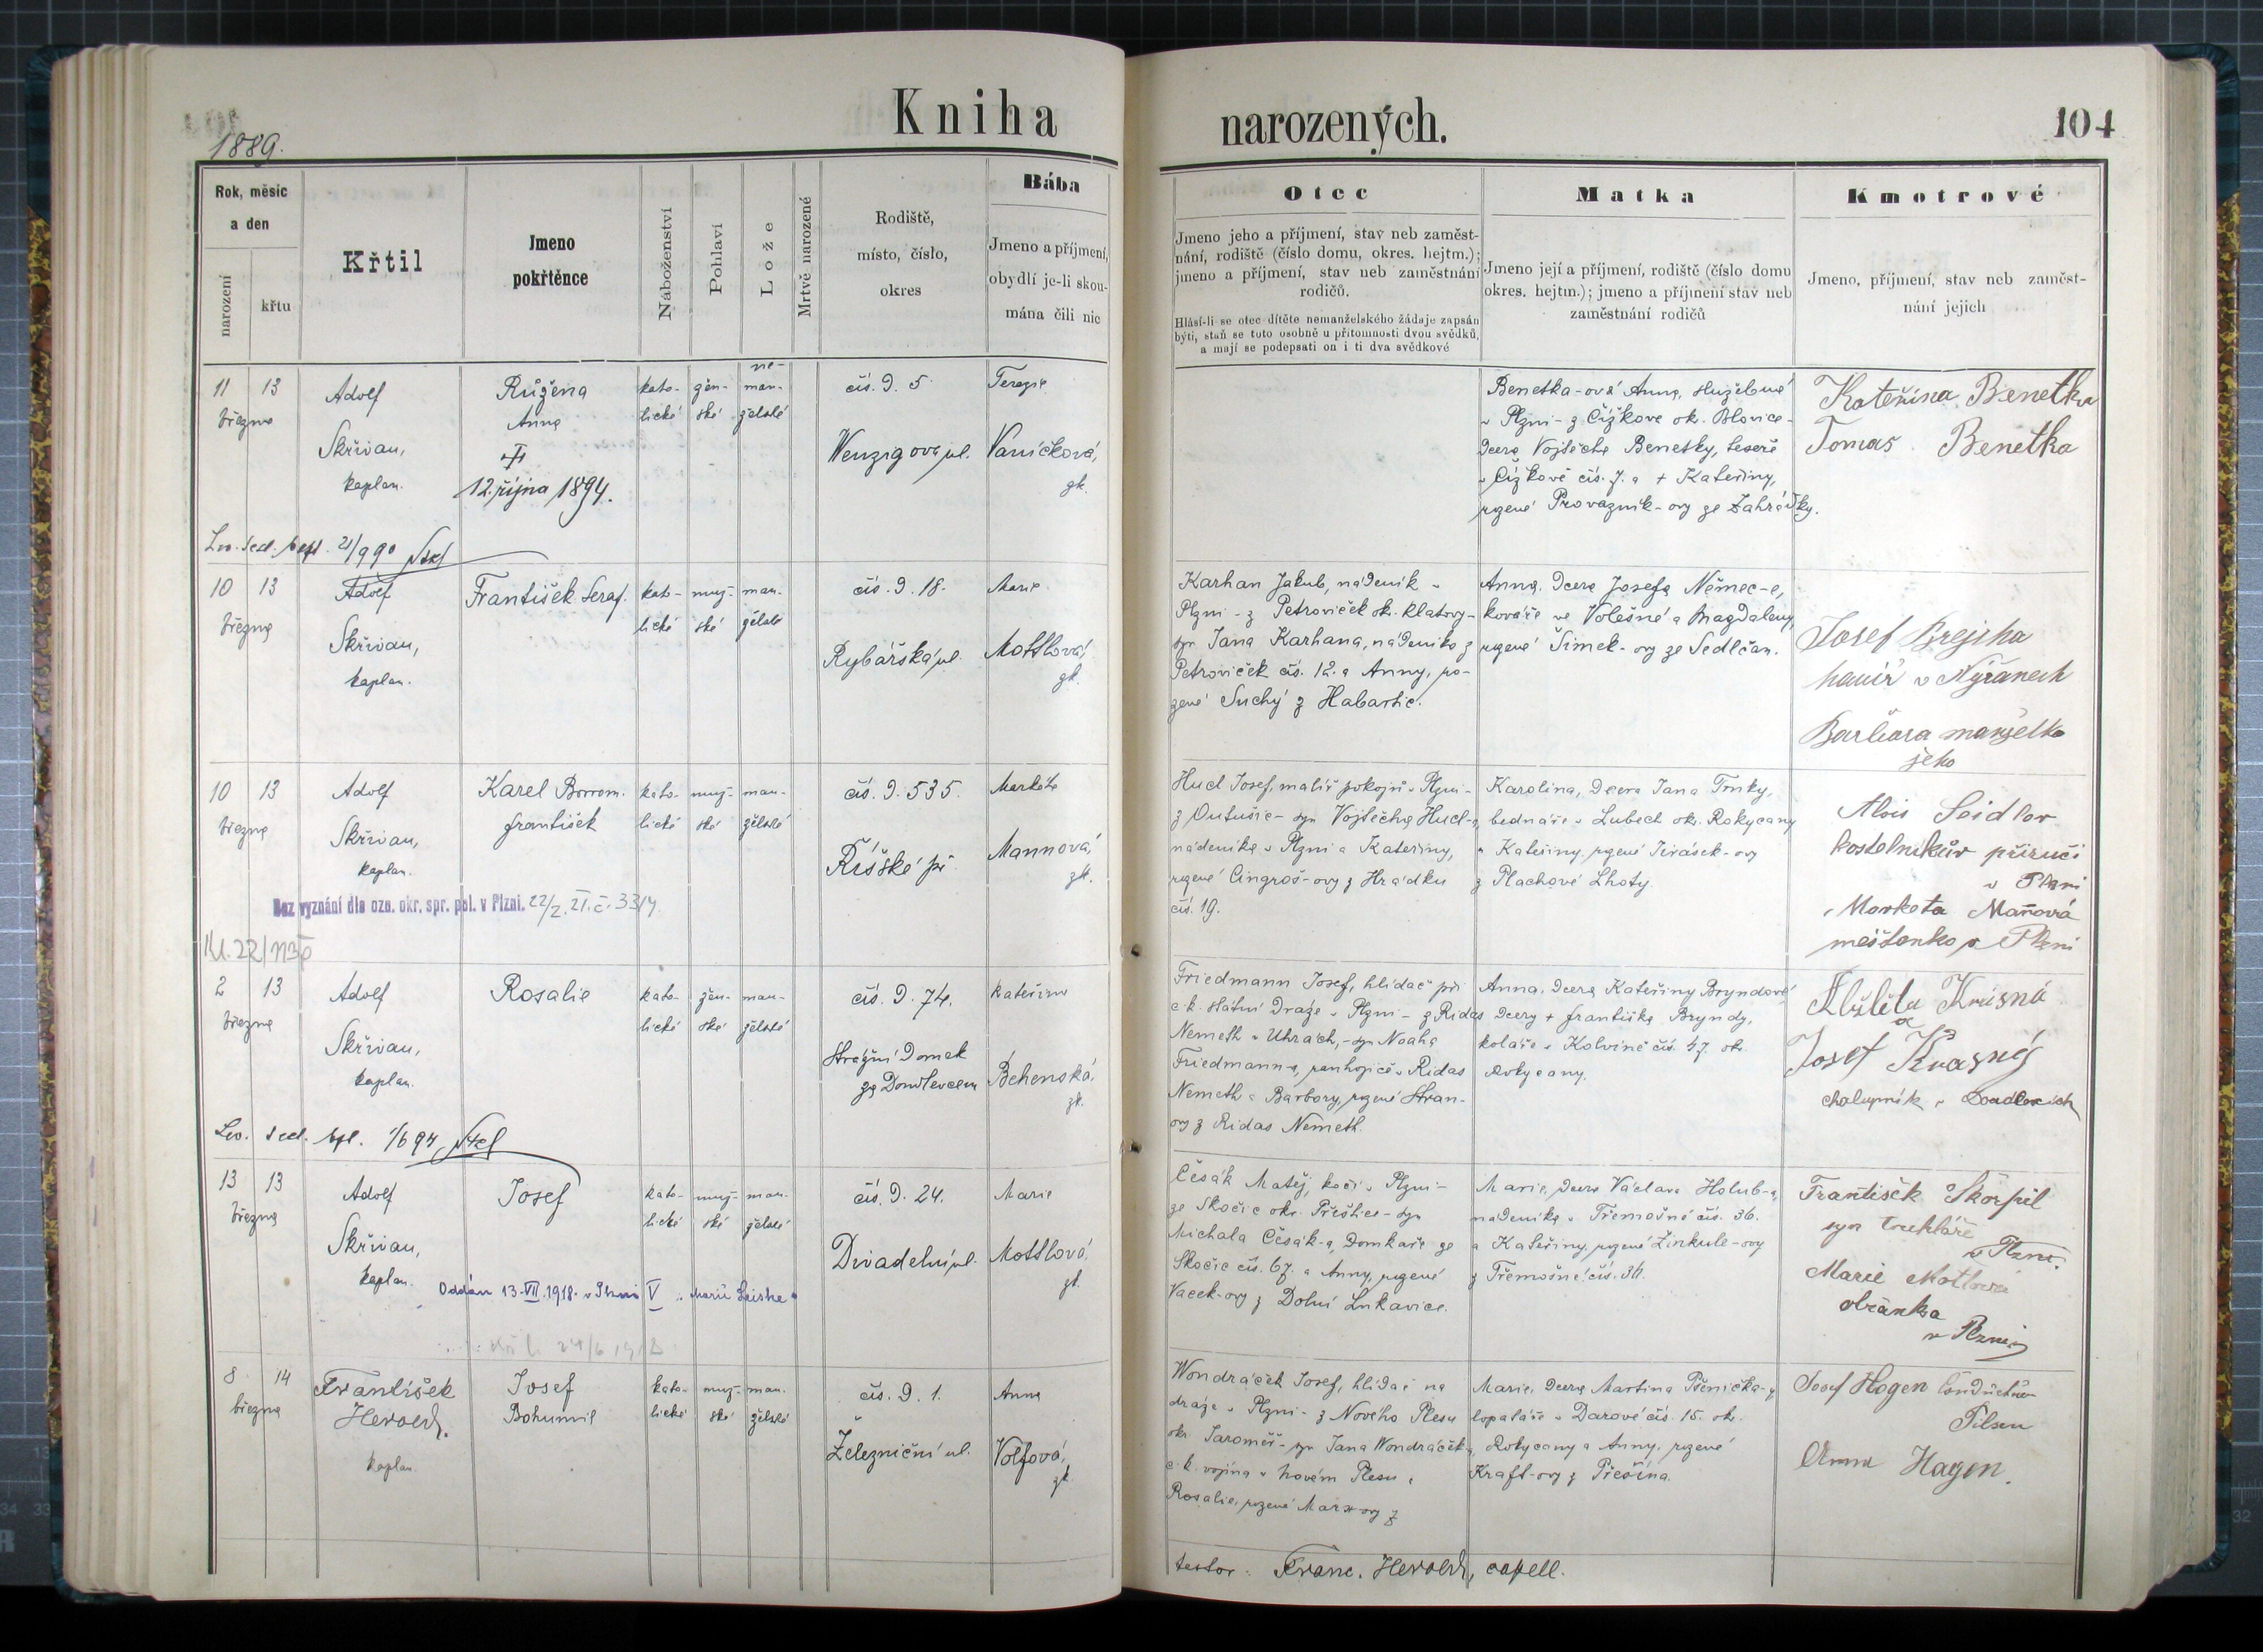 Kniha
narozených.
104
1889.
Rok, měsíc
a den
narození
křtu
Křtil
Jmeno
pokřtěnce
Náboženství
Pohlaví
Lože
Mrtvě narozené
Rodiště,
místo, číslo,
okres
Bába
Jmeno a příjmení,
obydlí je-li skou-
mána čili nic
Otec
Jmeno jeho a příjmení, stav neb zaměst-
nání, rodiště (číslo domu, okres. hejtm.);
jmeno a příjmení, stav neb zaměstnání
rodičů.
Hlásí-li se otec dítěte nemanželského žádaje zapsán
býti, staň se toto osobně u přítomnosti dvou svědků,
a mají se podepsati on i ti dva svědkové
Matka
Jmeno její a příjmení, rodiště (číslo domu
okres. hejtm.); jmeno a příjmení stav neb
zaměstnání rodičů
Kmotrové
Jmeno, příjmení, stav neb zaměst-
nání jejich
11 13
března
Adolf
Skřivan,
kaplan.
Růžena
Anna
12. října 1894.
kato-
lické
žen-
ské
ne-
man-
želské
čís. d. 5
Wenzigova ul.
Terezie
Vaníčková,
zk.
Benetka-ová Anna, služebná
v Plzni - z Čížkova ok. Blovice -
dcera Vojtěcha Benetky, tesaře
v Čížkově čís. 7. a + Kateřiny,
rozené Provazník-ovy ze Zahrádky.
Kateřina Benetka
Tomas Benetka
21/9 90
10 13
března
Adolf
Skřivan,
kaplan.
František Seraf.
kato-
lické
muž-
ské
man-
želské
čís. d. 18.
Rybářská ul.
Marie
Mottlová,
zk.
Karhan Jakub, nádeník v
Plzni - z Petroviček ok. Klatovy -
syn Jana Karhana, nádeníka z
Petroviček čís. 12. a Anny, ro-
zené Suchý z Habartic.
Anna, dcera Josefa Němec-e,
kováře ve Volešné a Magdaleny,
rozené Šimek-ovy ze Sedlčan.
Josef Brejcha
havíř v Nýřanech
Barbora manželka
jeho
10 13
března
Adolf
Skřivan,
kaplan.
Karel Borrom.
František
kato-
lické
muž-
ské
man-
želské
čís. d. 535.
Říšské př.
Markéta
Mannová,
zk.
Hucl Josef, malíř pokojů v Plzni -
z - syn Vojtěcha Hucl-a,
nádeníka v Plzni a Kateřiny,
rozené Cingroš-ovy z Hrádku
čís. 19.
Karolina, dcera Jana Trnky,
bednáře v Lubech ok. Rokycany
a Kateřiny rozené Jirásek-ovy
z Plachové Lhoty.
Alois Seidler
kostelníkův příručí
v Plzni
Markota Maňová
měšťanka v Plzni
Bez vyznání dle ozn. okr. spr. pol. v Plzni. 22/2. 21. č. 3314.
2 13
března
Adolf
Skřivan,
kaplan.
Rosalie
kato-
lické
žen-
ské
man-
želské
čís. d. 74.
Strážní domek
za Doudlevcem
Kateřina
Behenská,
zk.
Friedmann Josef, hlídač při
c. k. státní dráze v Plzni - z Ridas
Nemeth v Uhrách, - syn Noaha
Friedmann-a, v Ridas
Nemeth a Barbory, rozené Stran-
ovy z Ridas Nemeth.
Anna, dcera Kateřiny Bryndové,
dcery + Františka Bryndy,
koláře v Kolvíně čís. 47. ok.
Rokycany.
Krásná
a
Josef Krásný
chalupník v Doudlevcích
1/6 94
13 13
března
Adolf
Skřivan,
kaplan.
Josef
kato-
lické
muž-
ské
man-
želské
čís. d. 24.
Divadelní ul.
Marie
Mottlová,
zk.
Česák Matěj, kočí v Plzni -
ze Skočic ok. Přeštice - syn
Michala Česák-a, domkaře ze
Skočic čís. 67. a Anny, rozené
Vacek-ovy z Dolní Lukavice.
Marie, dcera Václava Holub-a,
nádeníka v Třemošné čís. 36.
a Kateřiny, rozené Žinkule-ovy
z Třemošné čís. 36.
František Škorpil
syn truhláře
v Plzni.
Marie Motlová
občanka
v Plzni
Oddán 13. VII. 1918. v Plzni V
8 14
března
František
Herold,
kaplan
Josef
Bohumil
kato-
lické
muž-
ské
man-
želské
čís. d. 1.
Železniční ul.
Anna
Volfová,
zk.
Wondráček Josef, hlídač na
dráze v Plzni - z Nového Plesu
ok. Jaroměř - syn Jana Wondráčka,
c. k. vojína v Novém Plesu a
Rosalie, rozené Marx-ovy z
Marie, dcera Martina Pšenička-y
lopatáře v Darové čís. 15. ok.
Rokycany a Anny, rozené
Kraft-ovy z Přešína.
Josef Hagen Conducteur
Pilsen
Anna Hagen.
testor: Franc. Herold, capell.